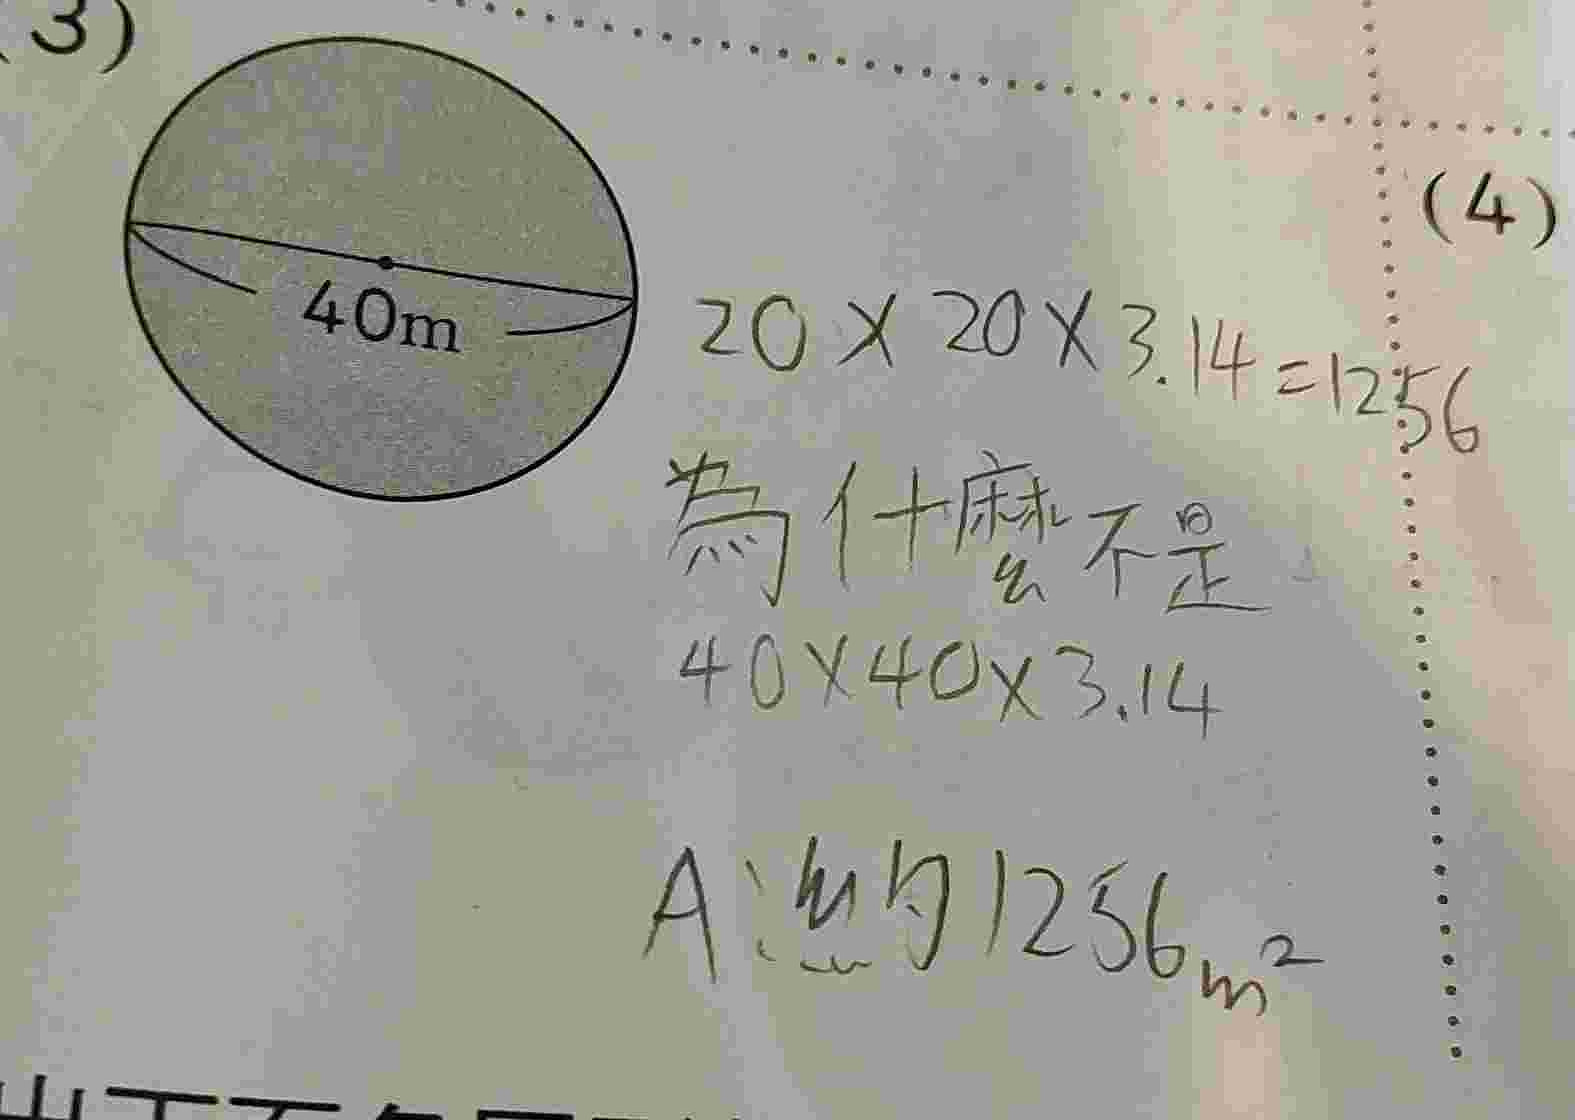 (3)
40m
(4)
20×20×3.14=1256
為什麼不是
40×40×3.14
A:約1256m²